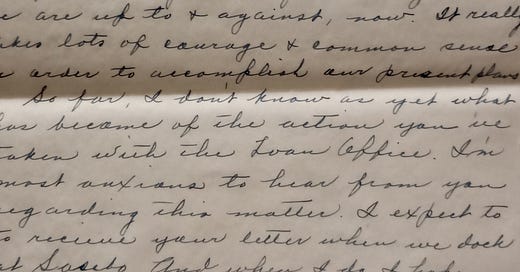 e are up to & against, now. It really
akes lots of courage & common sense
n order to accomplish our present plans
So far, I don't know as yet what
has become of the action you've
taken with the Loan Office. I'm
most anxious to hear from you
regarding this matter. I expect to
to recieve your letter when we dock
at Sasebo. And when I do I